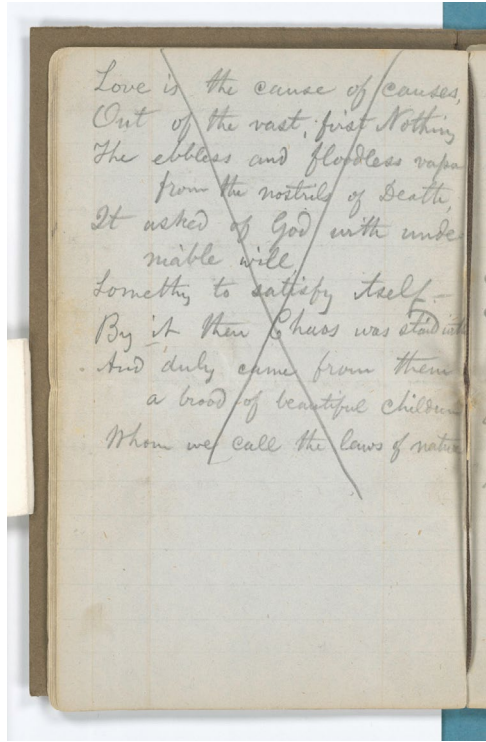 Love is the cause of causes,
Out of the vast, first Nothing
The ebbless and floodless vapo
from the nostrils of Death,
It asked of God with unde
niable will,
Somethg to satisfy itself.—
By it then Chaos was staid with
And duly came from them
a brood of beautiful children
Whom we call the laws of nature